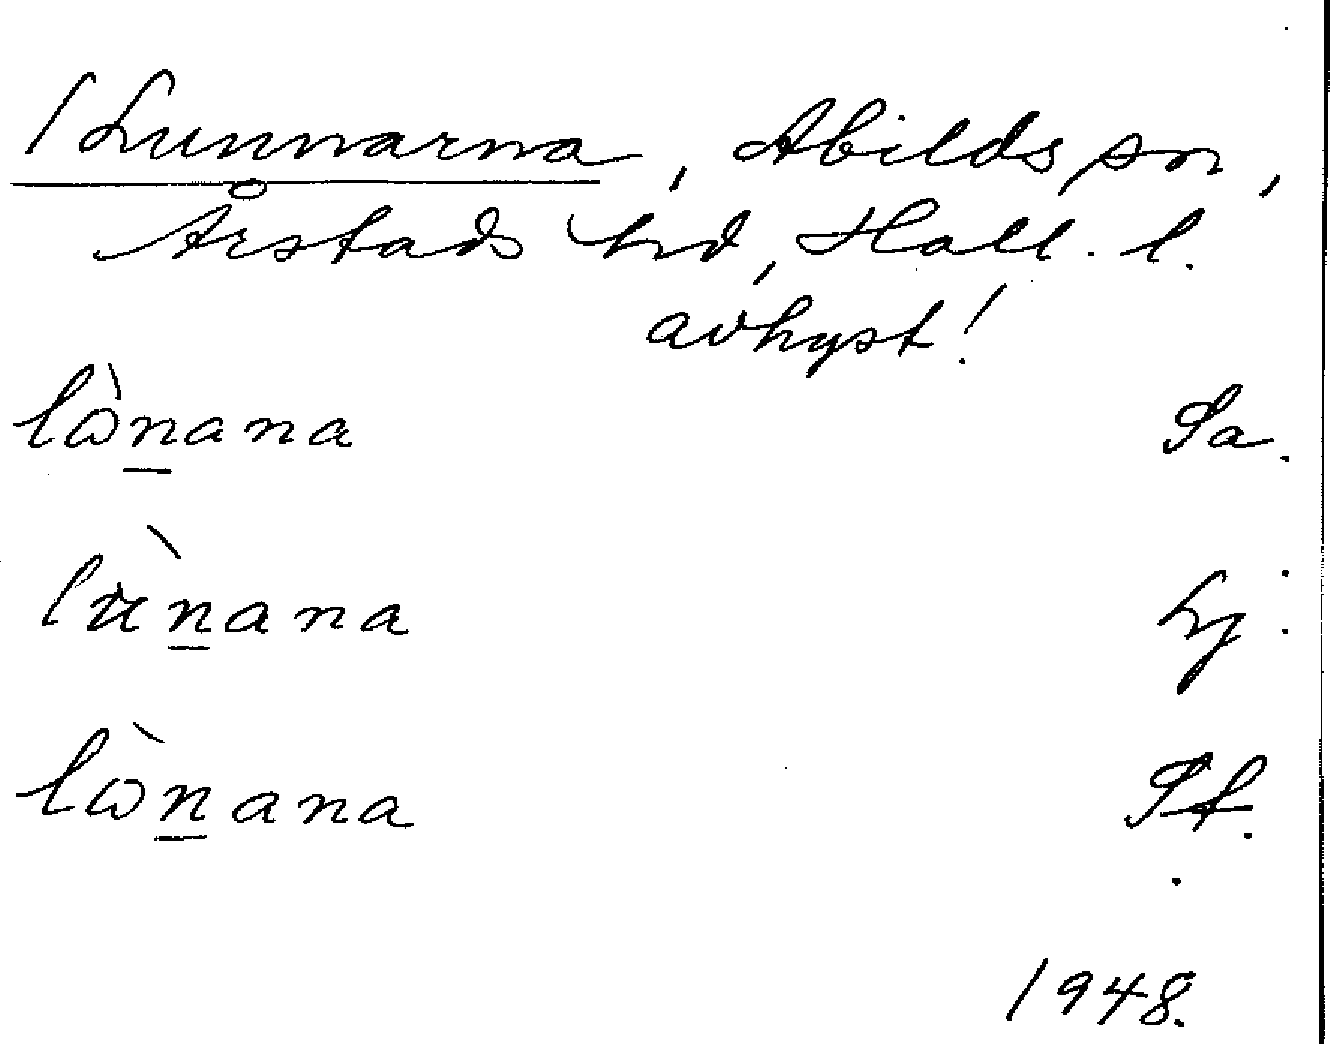 / Lunnarna, Abilds sn,
Årstads hd, Hall. l.
avhyst!
lὼn̲ana Sa.
lùn̲ana Hj.
lὼn̲ana Sf.
1948.